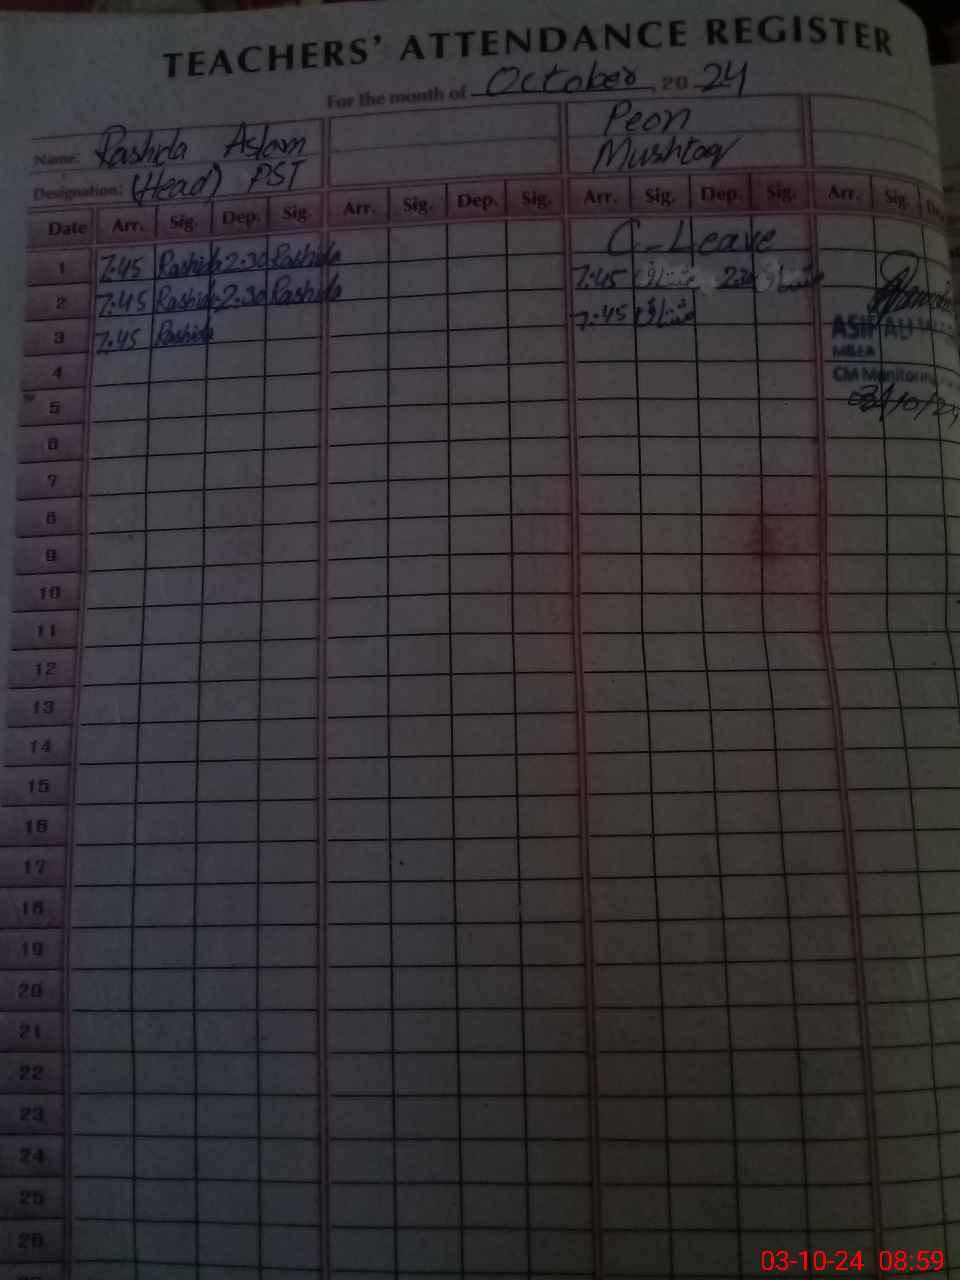 TEACHERS' ATTENDANCE REGISTER
For the month of October 2024
Name: Rashida Aslam
Designation: (Head) PST
Peon
Mushtaq
Date Arr. Sig. Dep. Sig. Arr. Sig. Dep. Sig. Arr. Sig. Dep. Sig. Arr. Sig.
1 7:45 Rashida 2:30 Rashida C-Leave
2 7:45 Rashida 2:30 Rashida 7:45 مشتاق 2:30 مشتاق
3 7:45 Rashida 7:45 مشتاق
ASIF ALI
M&EA
4
CM Monitoring
5
6
7
8
9
10
11
12
13
14
15
16
17
18
19
20
21
22
23
24
25
26
03-10-24 08:59